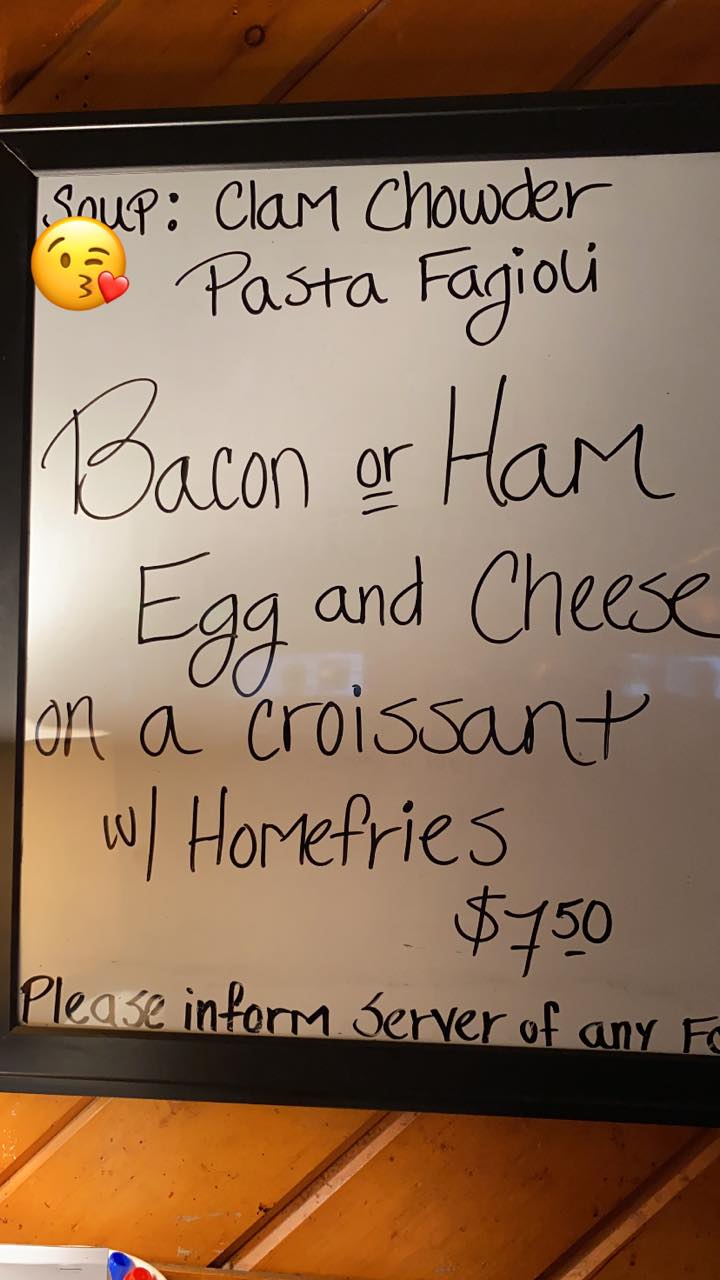 Soup: Clam Chowder
Pasta Fagioli
Bacon or Ham
Egg and Cheese
on a croissant
w/ Homefries
$7.50
Please inform Server of any